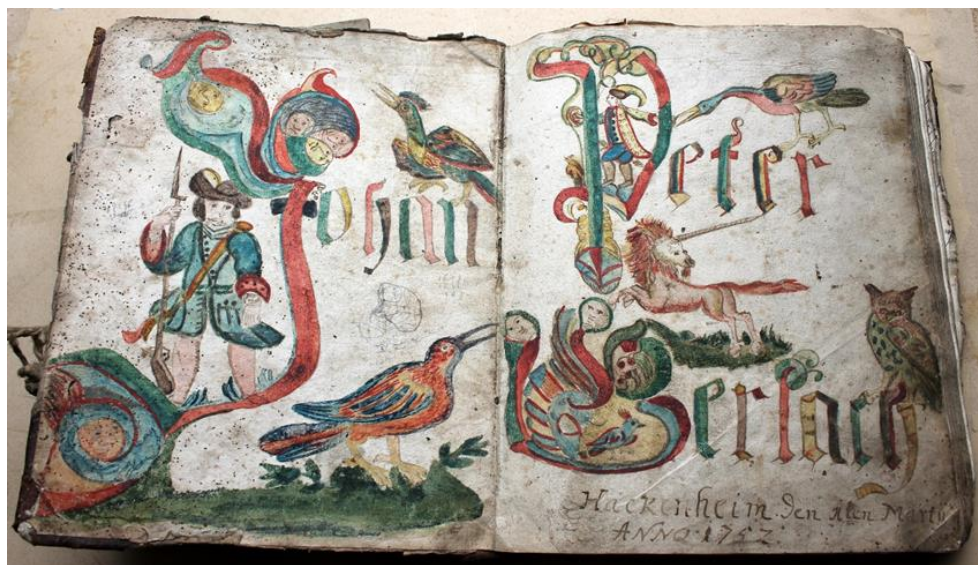 Johan
Peter
Gerlach
Hackenheim den Marty
ANNO 1757